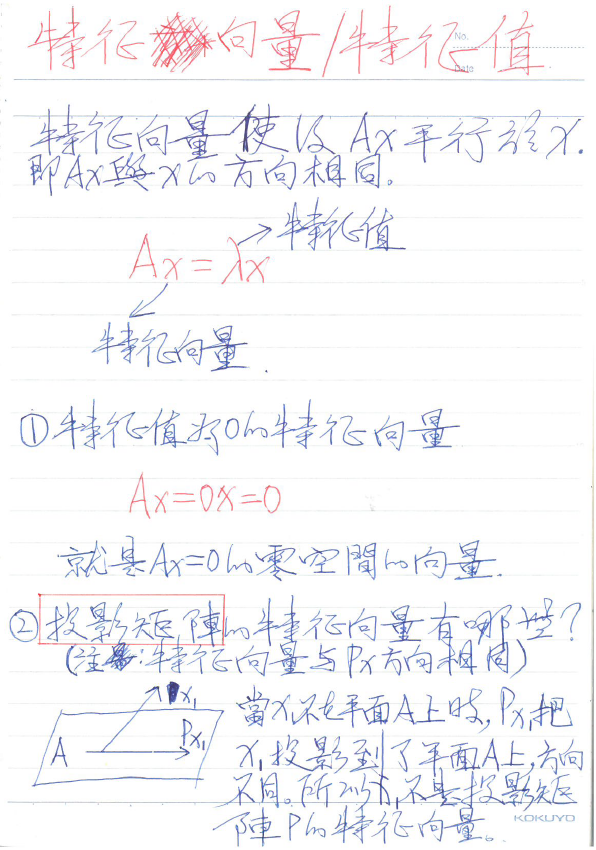 特征向量/特征值
No.
Date
特征向量使得Ax平行於x.
即Ax與x的方向相同。
特征值
Ax=λx
特征向量.
①特征值為0的特征向量
Ax=0x=0
就是Ax=0的零空間的向量.
②投影矩陣的特征向量有哪些?
(注:特征向量与Px方向相同)
x₁
A
Px₁
當x₁不在平面A上時,Px₁把
x₁投影到了平面A上,方向
不同。所以x₁不是投影矩
陣P的特征向量。
KOKUYO